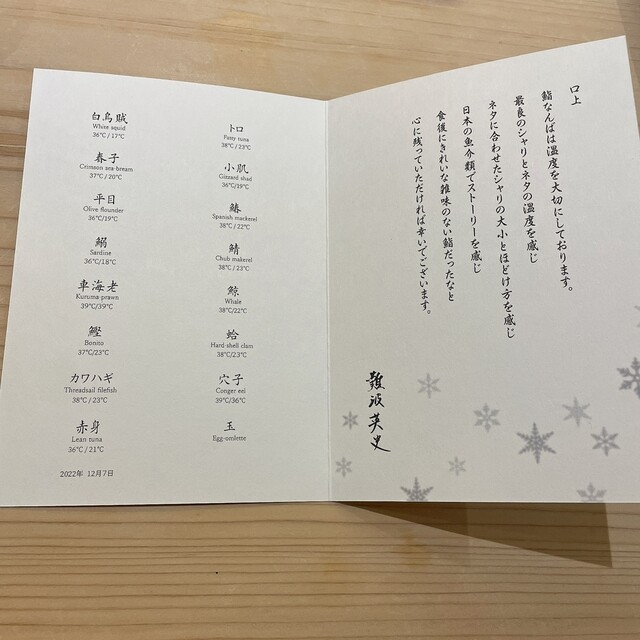 白烏賊
White squid
36℃ / 17℃
春子
Crimson sea-bream
37℃ / 20℃
平目
Olive flounder
36℃/19℃
鰯
Sardine
36℃/18℃
車海老
Kuruma-prawn
39℃/39℃
鰹
Bonito
37℃/23℃
カワハギ
Threadsail filefish
38℃ / 23℃
赤身
Lean tuna
36℃ / 21℃
2022年 12月7日
トロ
Fatty tuna
38℃ / 23℃
小肌
Gizzard shad
36℃/19℃
鰆
Spanish mackerel
38℃ / 22℃
鯖
Chub makerel
38℃ / 23℃
鯨
Whale
38℃/22℃
蛤
Hard-shell clam
38℃/23℃
穴子
Conger eel
39℃/36℃
玉
Egg-omlette
口上
鮨なんばは温度を大切にしております。
最良のシャリとネタの温度を感じ
ネタに合わせたシャリの大小とほどけ方を感じ
日本の魚介類でストーリーを感じ
食後にきれいな雑味のない鮨だったなと
心に残っていただければ幸いでございます。
難波英史